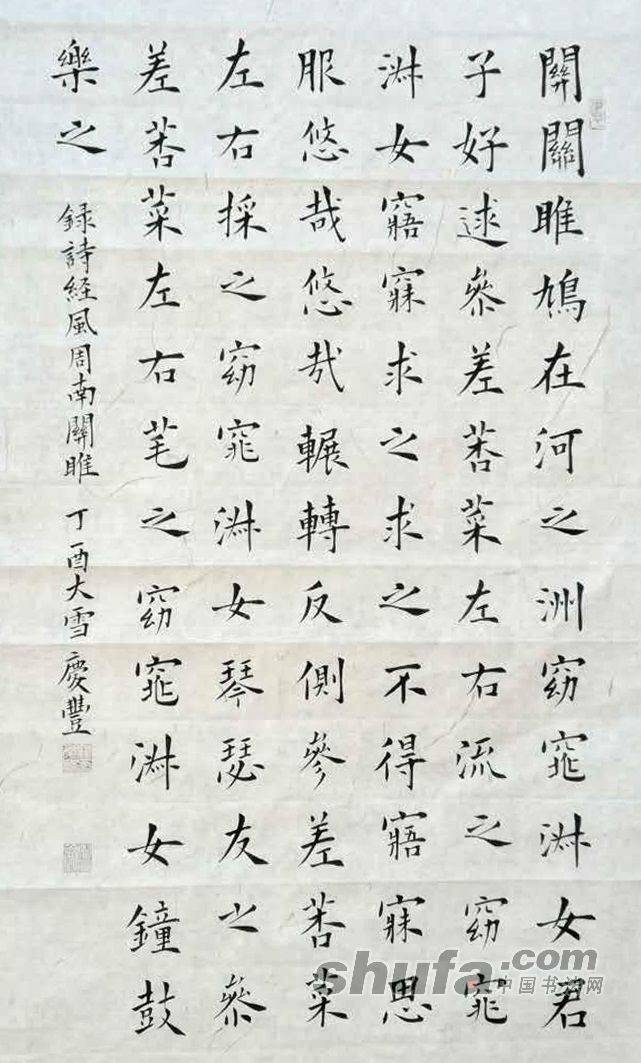 關關雎鳩在河之洲窈窕淑女君
子好逑參差荅菜左右流之窈窕
淋女寤寐求之求之不得寤寐思
服悠哉悠哉輾轉反側參差荅菜
左右採之窈窕淋女琴瑟友之參
差荅菜左右芼之窈窕淋女鐘鼓
樂之
録詩経風周南關雎 丁酉大雪慶豐
shufa.com
中国书法网